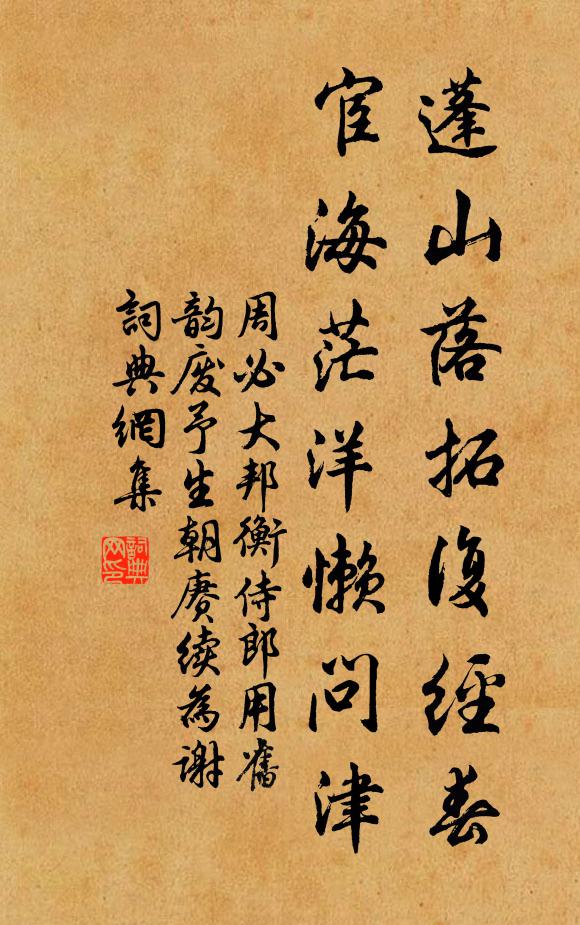 蓬山落拓復經春
宦海茫洋懶問津
周必大邦衡侍郎用舊
韵廢予生朝賡續為謝
詞典網集
詞典网印